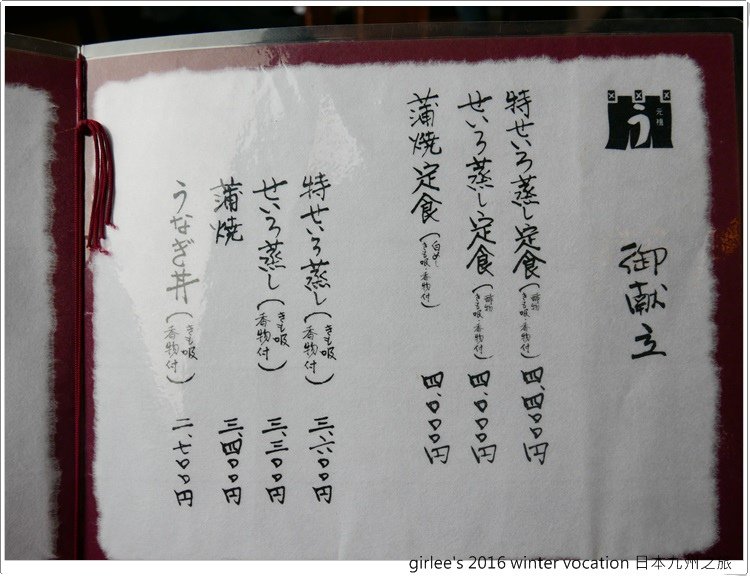 元祖
う
御献立
特せいろ蒸し定食(酢物 きも吸 香物付)四、四〇〇円
せいろ蒸し定食(酢物 きも吸 香物付)四、〇〇〇円
蒲焼定食(白めし きも吸 香物付)四、〇〇〇円
特せいろ蒸し(きも吸 香物付)三、六〇〇円
せいろ蒸し(きも吸 香物付)三、三〇〇円
蒲焼 三、四〇〇円
うなぎ丼(きも吸 香物付)二、七〇〇円
girlee's 2016 winter vocation 日本九州之旅